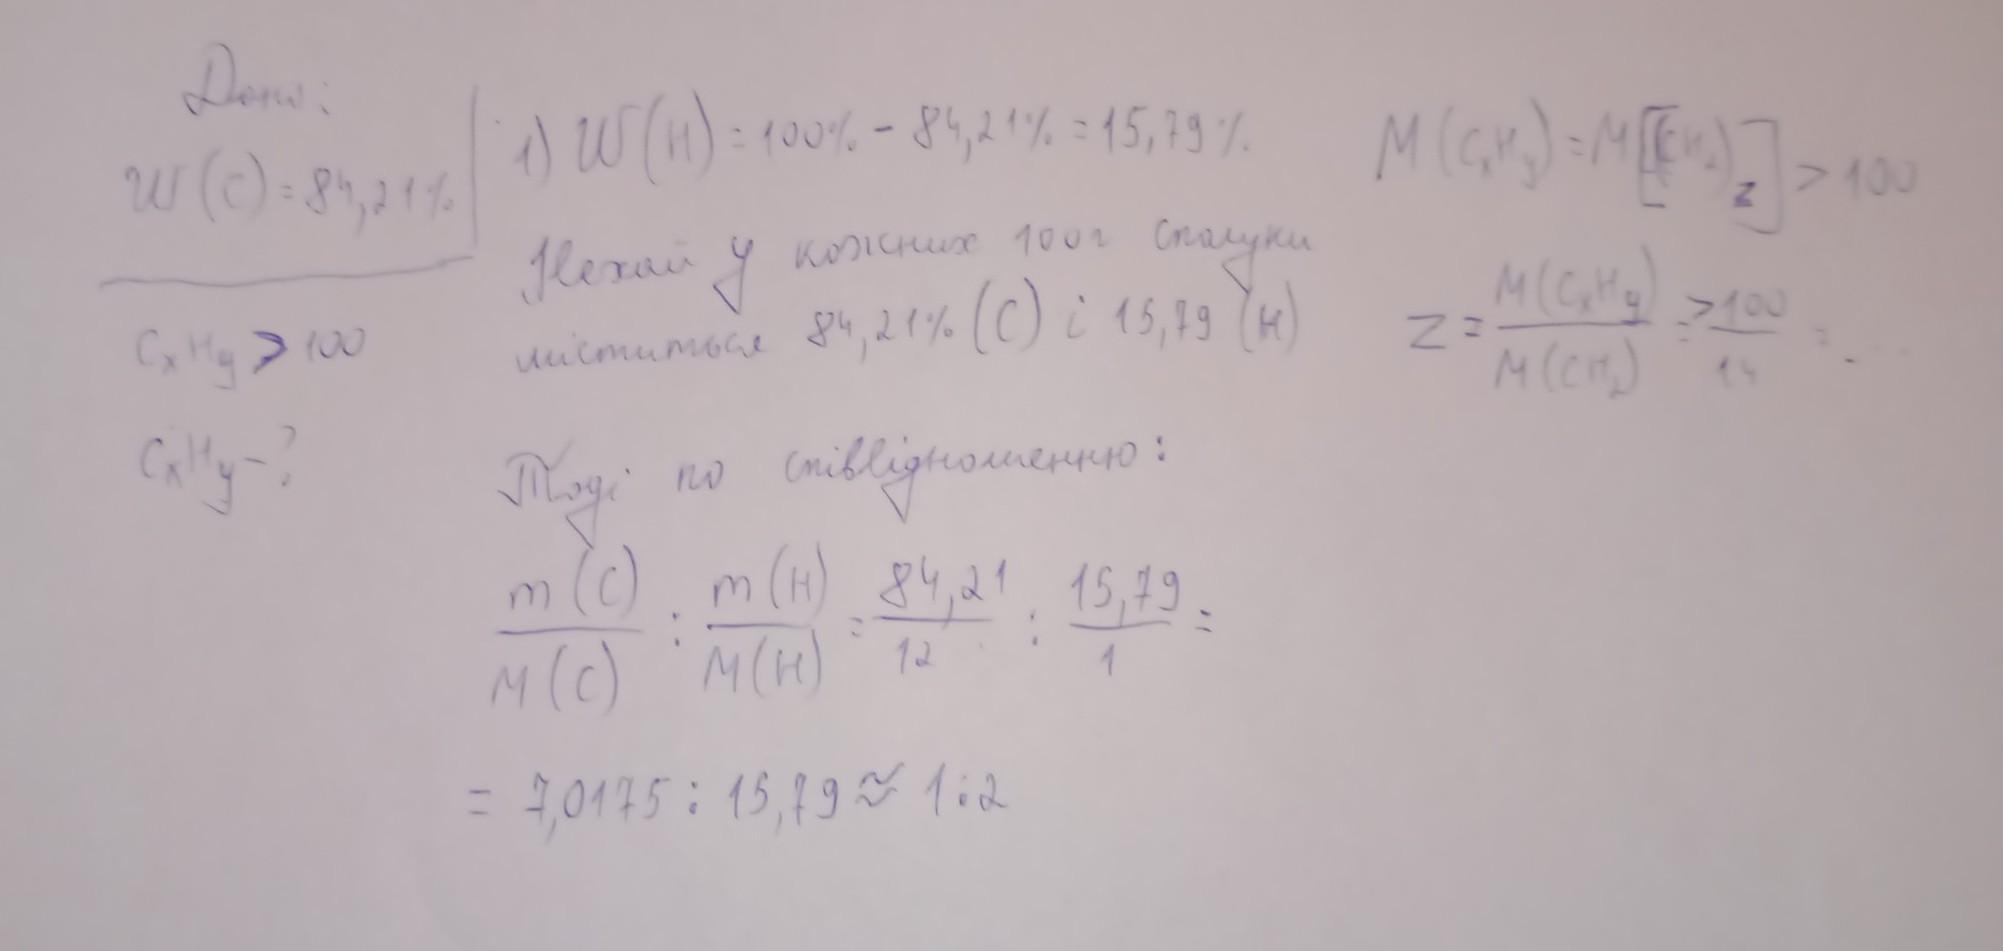 Дано:
W(C) = 84,21%
CxHy > 100
CxHy - ?
1) W(H) = 100% - 84,21% = 15,79%
Нехай у кожних 100г сполуки
міститься 84,21% (C) і 15,79 (H)
Тоді по співвідношенню:
m(C)/M(C) : m(H)/M(H) = 84,21/12 : 15,79/1 =
= 7,0175 : 15,79 ≈ 1:2
M(CxHy) = M[(CH₂)z] > 100
Z = M(CxHy)/M(CH₂) = >100/14 = ...